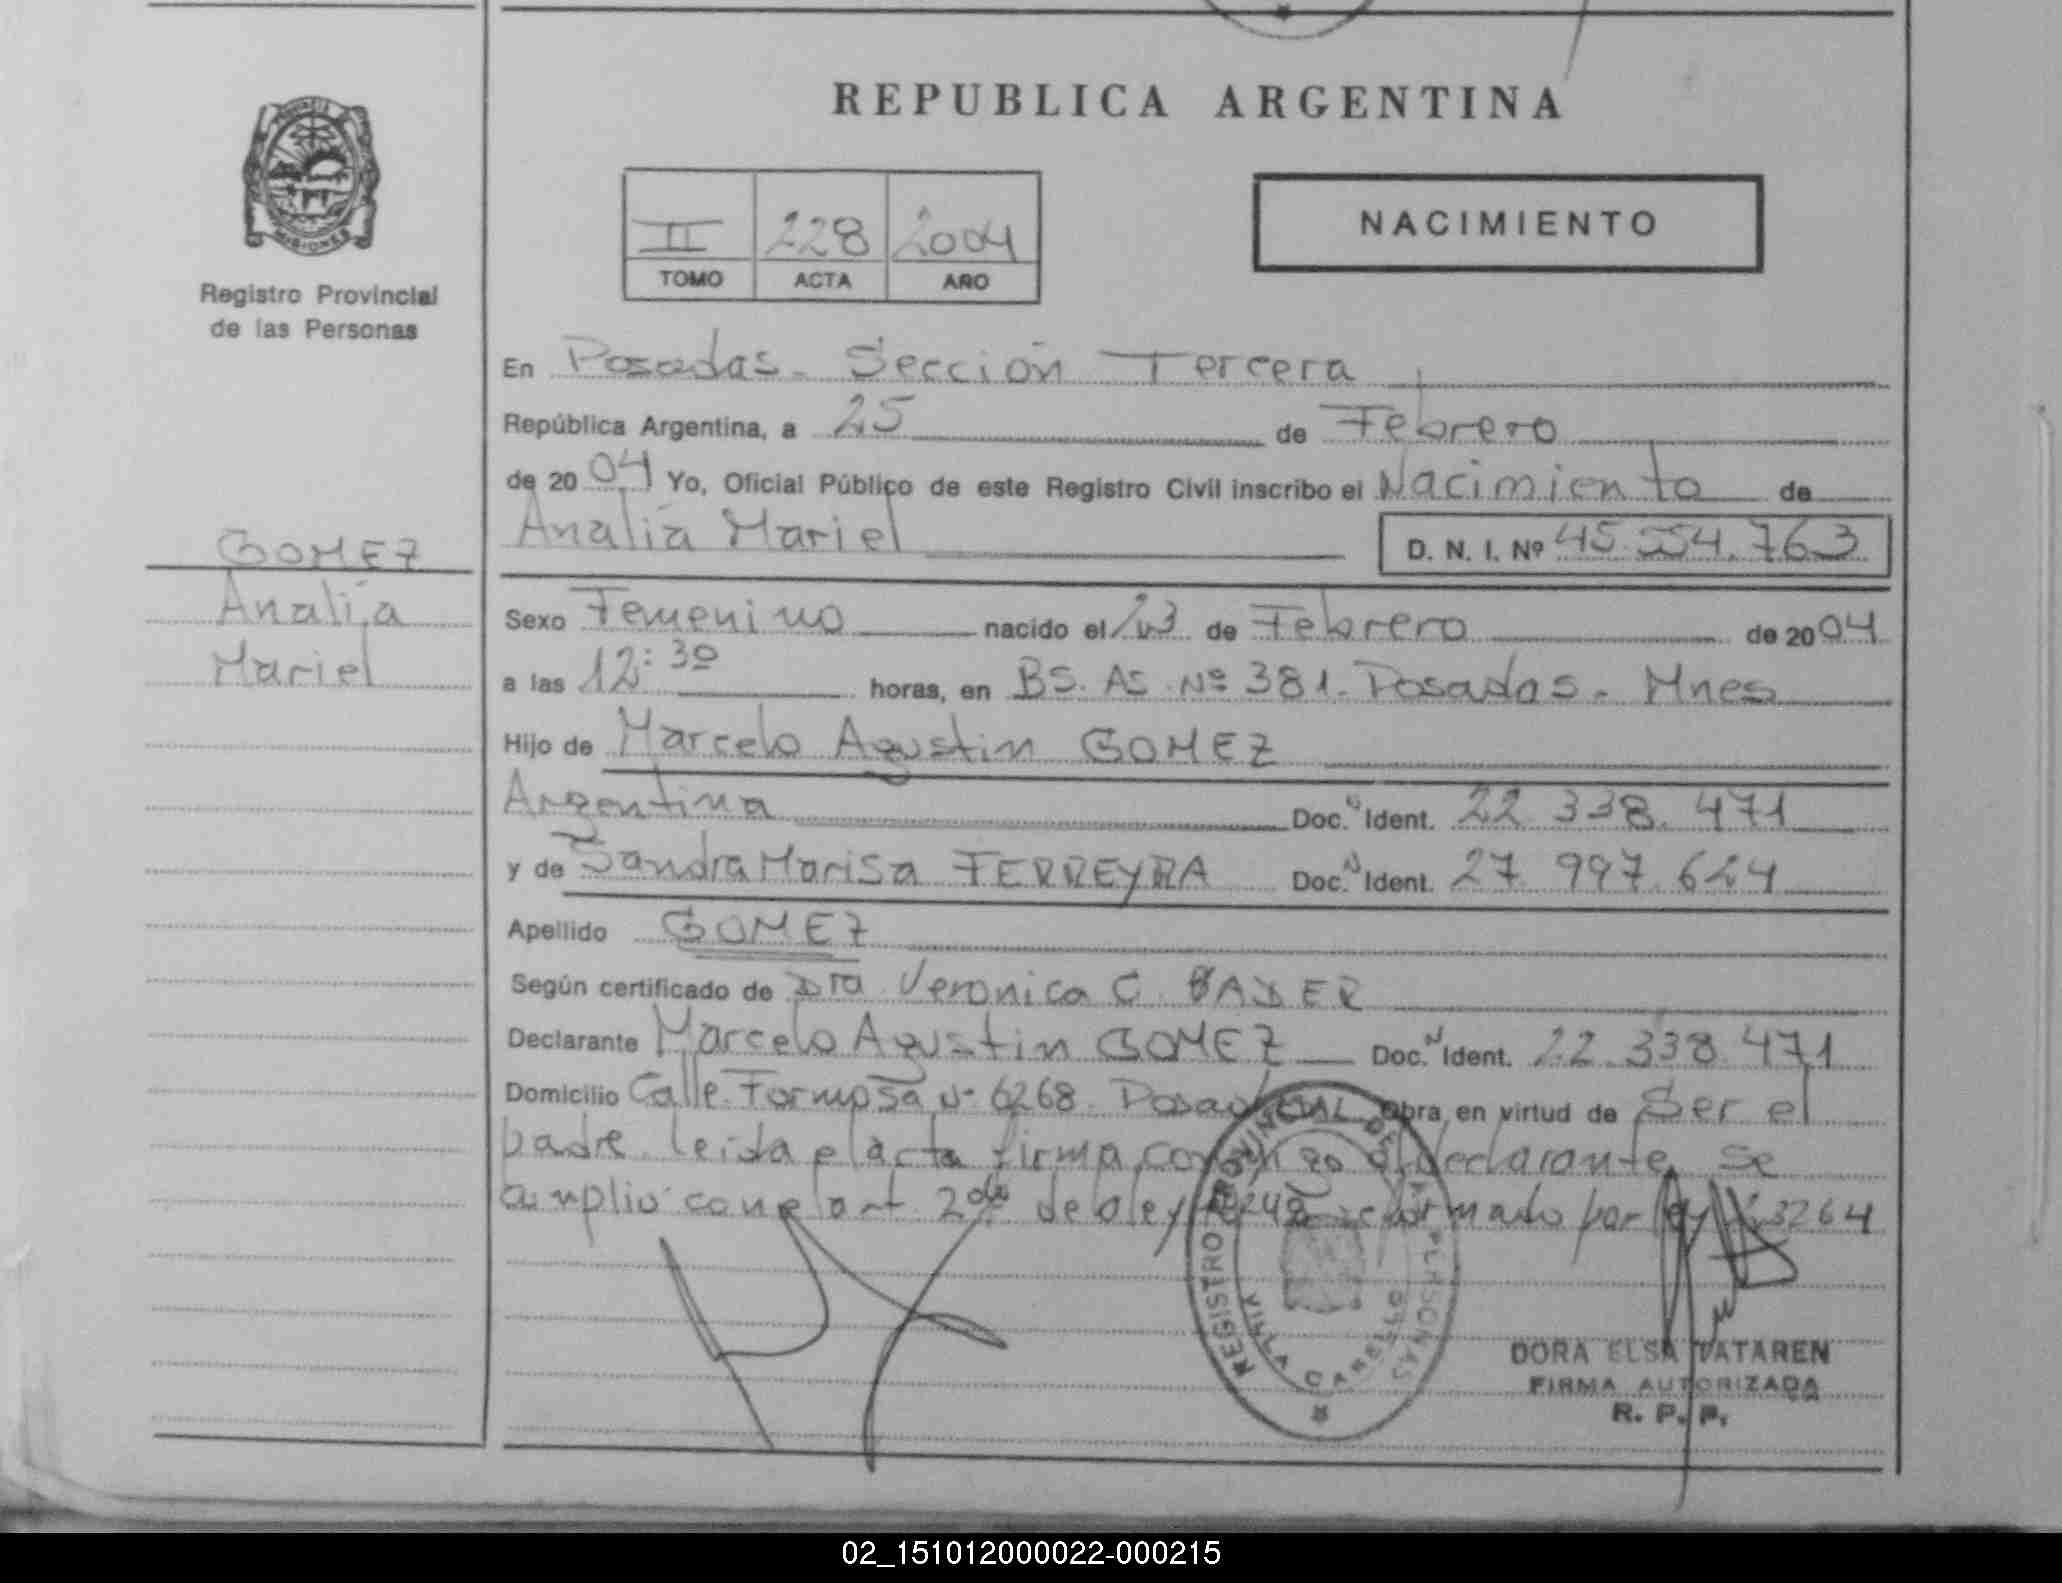 REPUBLICA ARGENTINA
MISIONES
Registro Provincial
de las Personas
II 228 2004
TOMO ACTA AÑO
NACIMIENTO
GOMEZ
Analía
Mariel
En Posadas. Sección Tercera
República Argentina, a 25 de Febrero
de 20 04 Yo, Oficial Público de este Registro Civil inscribo el Nacimiento de
Analía Mariel D. N. I. Nº 45.554.763
Sexo Femenino nacido el 23 de Febrero de 20 04
a las 12:30 horas, en BS. AS. Nº 381. Posadas. Mnes
Hijo de Marcelo Agustin GOMEZ
Argentina Doc. N Ident. 22.338.471
y de Sandra Marisa FERREYRA Doc. N Ident. 27.997.624
Apellido GOMEZ
Según certificado de Dra. Veronica C. BADER
Declarante Marcelo Agustin GOMEZ Doc. N Ident. 22.338.471
Domicilio Calle Formosa Nº 6268. Posadas Obra en virtud de Ser el
padre. leida el acta firma conmigo el declarante, se
cumplio con el art 2do de la ley 18248 reformado por ley 23264
REGISTRO PROVINCIAL DE LAS PERSONAS
VILLA CABELLO
DORA ELSA TATAREN
FIRMA AUTORIZADA
R. P. P.
02_151012000022-000215